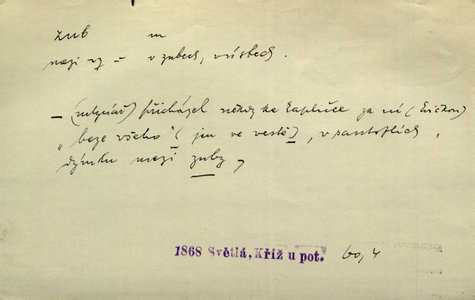 zub m
mezi zy – v zubech, v ústech.
– (mlynář) přicházel někdy ke kapličce za ní (Eričkou)
„beze všeho“ (jen ve vestě), v pantoflích,
dýmku mezi zuby,
1868 Světlá, Kříž u pot. 60, 4